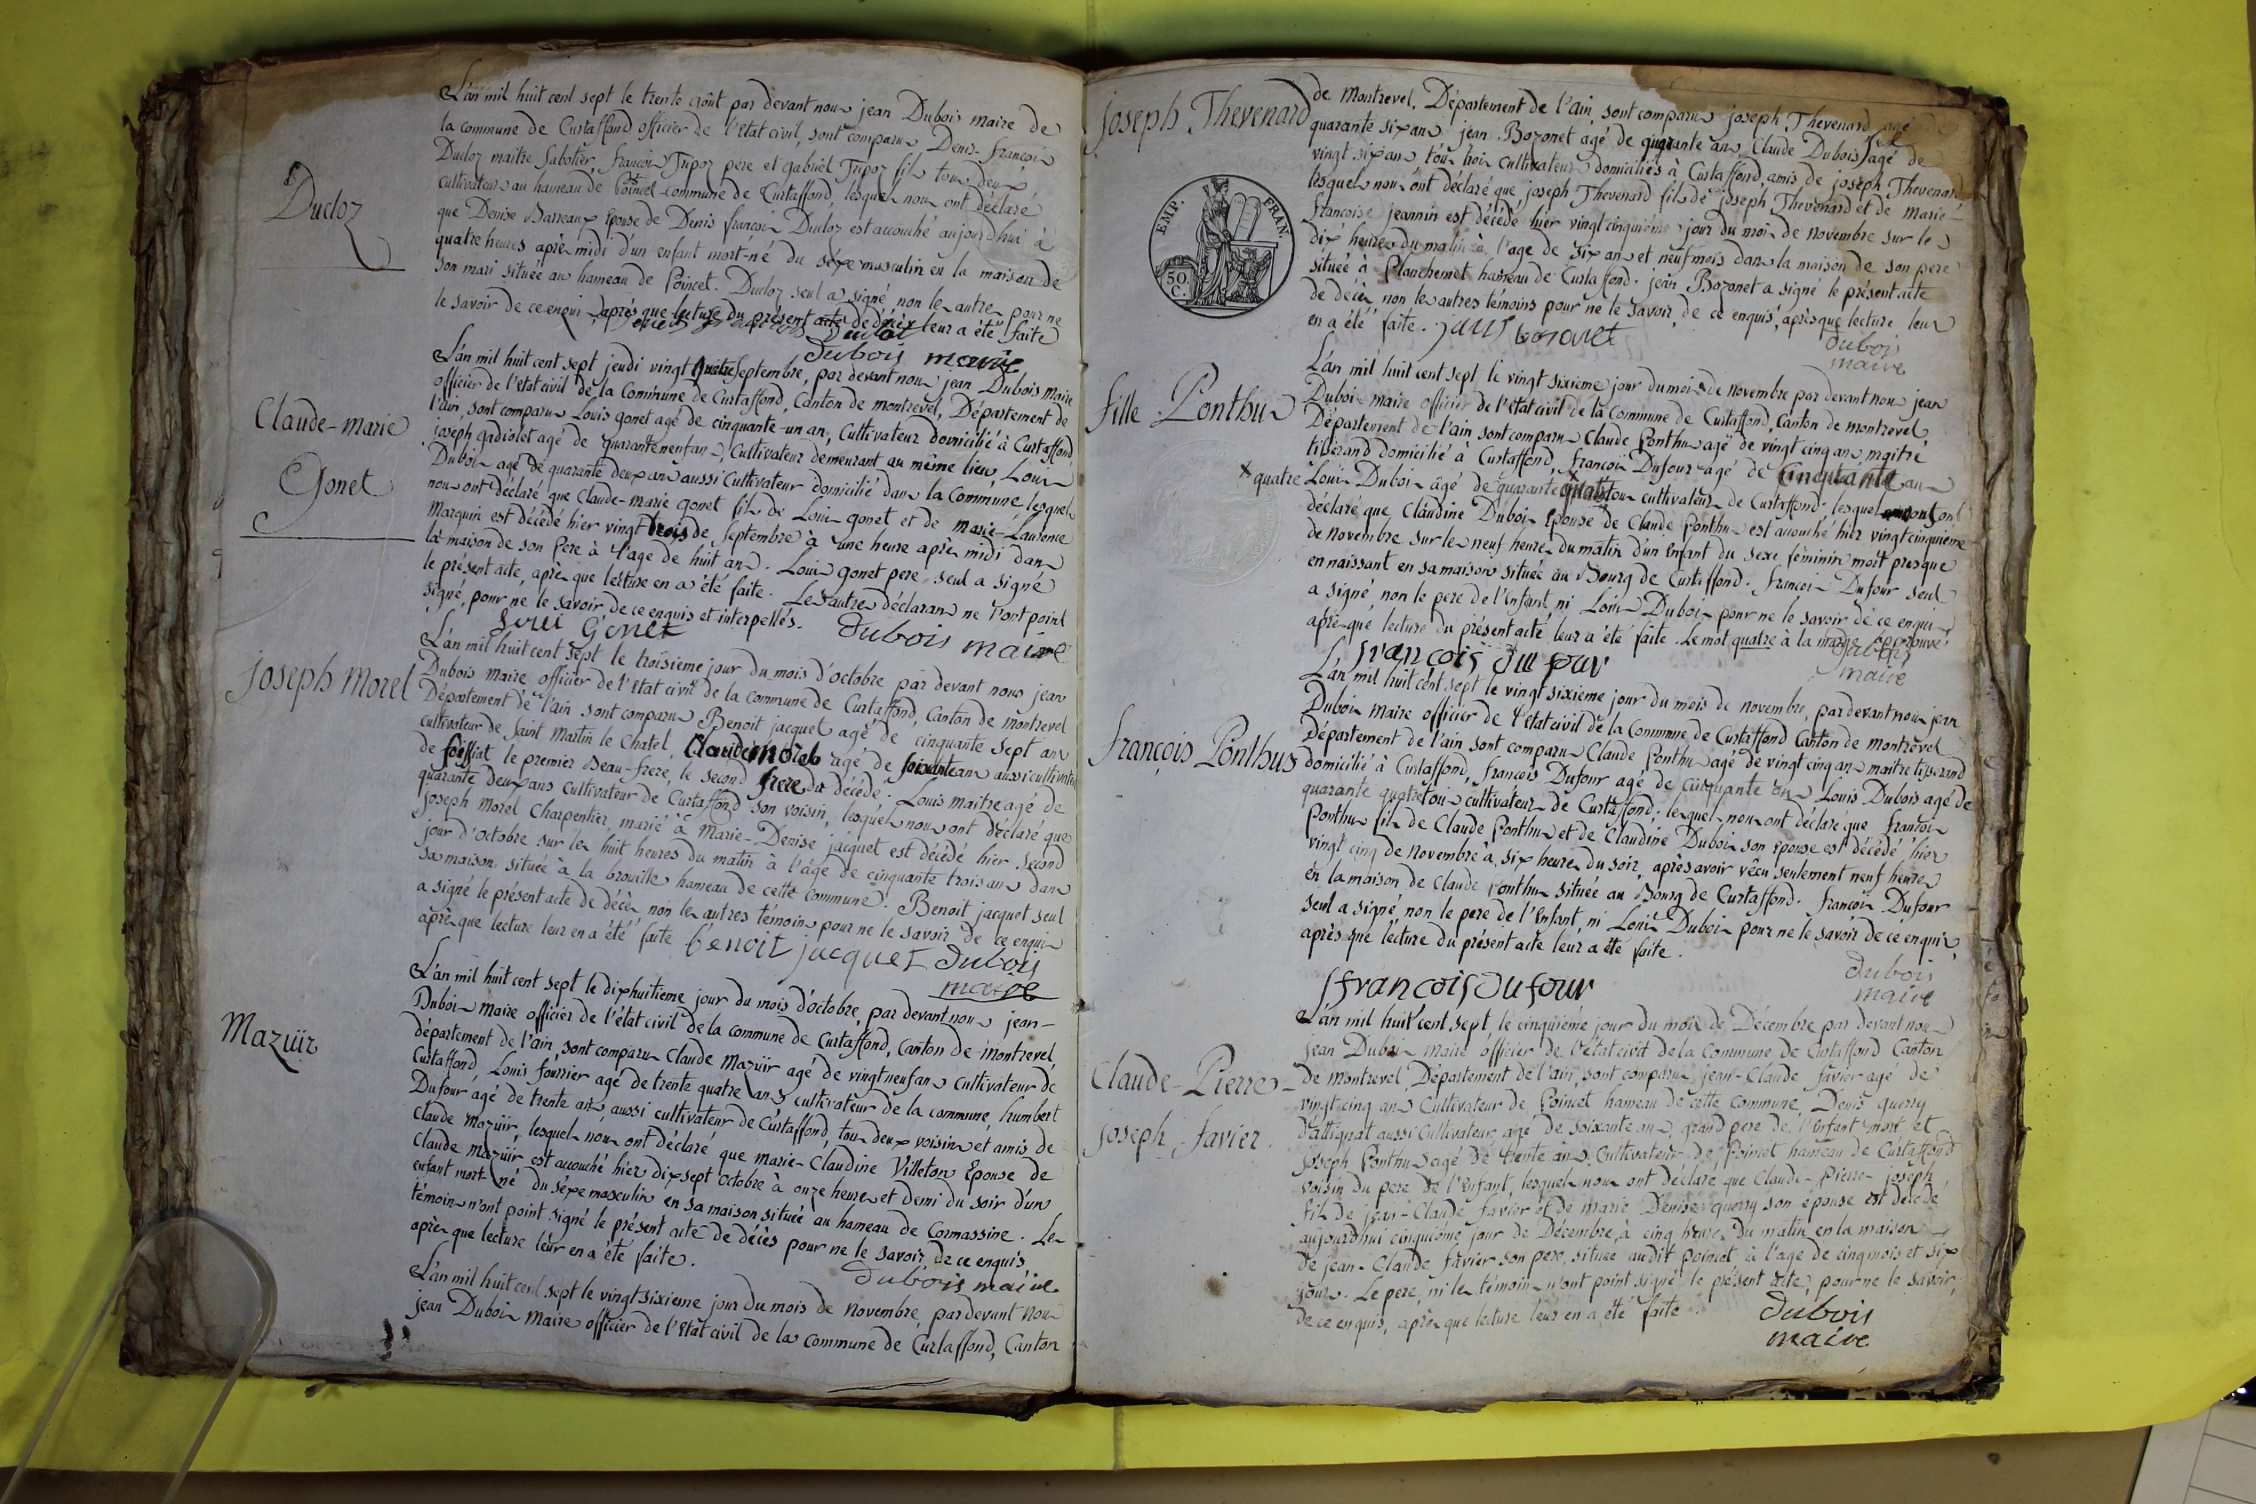 L'an mil huit cent sept le trente août par devant nous jean Dubois maire de
la commune de Curtaffond officier de l'Etat civil, sont comparus Denis-françois
Ducloz maitre Sabotier, françois Tripoz pere et gabriel Tripoz fils tous deux
Ducloz
cultivateurs au hameau de Poincet commune de Curtaffond, lesquels nous ont déclaré
que Denise Barreaux épouse de Denis françois Ducloz est accouché aujourd'hui à
quatre heures après midi d'un enfant mort-né du séxe masculin en la maison de
son mari située au hameau de Poincet. Ducloz seul a signé non les autres pour ne
le savoir de ce enquis, après que lecture du présent acte de décès leur a été faite
Ducloz
Dubois maire
L'an mil huit cent sept jeudi vingt quatre Septembre, par devant nous jean Dubois maire
officier de l'etat civil de la Commune de Curtaffond, Canton de montrevel, Département de
l'ain, sont comparus Louis gonet agé de cinquante-un an, Cultivateur domicilié à Curtaffond
Claude-marie
Gonet
joseph gadiolet agé de quarante neuf ans, Cultivateur demeurant au même lieu, Louis
Dubois agé de quarante deux ans aussi Cultivateur domicilié dans la Commune, lesquels
nous ont déclaré que Claude-marie gonet fils de Louis gonet et de marie-Laurence
Marquis est décédé hier vingt trois de Septembre à une heure après midi dans
la maison de son Père à l'age de huit ans. Louis gonet pere, seul a signé
le présent acte, après que lecture en a été faite. Les autres déclarans ne l'ont point
signé, pour ne le savoir de ce enquis et interpellés.
Loui Gonet Dubois maire
L'an mil huit cent sept le troisieme jour du mois d'octobre par devant nous jean
joseph Morel
Dubois maire officier de l'Etat civil de la commune de Curtaffond, Canton de montrevel
Département de l'ain sont comparus Benoit jacquet agé de cinquante sept ans
cultivateur de Saint Martin le Chatel, Claude Morel agé de soixante ans aussi cultivateur
de foissiat, le premier Beau-frere, le second frere du décédé. Louis maitre agé de
quarante deux ans cultivateur de Curtaffond son voisin, lesquels nous ont déclaré que
joseph morel Charpentier, marié à Marie-Denise jacquet est décédé hier second
jour d'octobre sur les huit heures du matin à l'âge de cinquante trois ans dans
sa maison située à la brouille hameau de cette commune. Benoit jacquet seul
a signé le présent acte de décès, non les autres témoins pour ne le savoir de ce enquis
après que lecture leur en a été faite benoit jacquet Dubois
maire
L'an mil huit cent sept le dixhuitieme jour du mois d'octobre, par devant nous jean-
Mazüir
Dubois maire officier de l'état civil de la commune de Curtaffond, Canton de montrevel
département de l'ain, sont comparus Claude mazüir agé de vingt neuf ans cultivateur de
Curtaffond, Louis fourrier agé de trente quatre ans cultivateur de la commune, humbert
Dufour agé de trente ans aussi cultivateur de Curtaffond, tous deux voisins et amis de
Claude mazüir, lesquels nous ont déclaré que marie-Claudine Villeton Epouse de
Claude mazüir est accouché hier dix sept octobre à onze heures et demi du soir d'un
enfant mort né du séxe masculin en sa maison située au hameau de Cormassine. Les
témoins n'ont point signé le présent acte de décès pour ne le savoir de ce enquis
après que lecture leur en a été faite.
Dubois maire
L'an mil huit cent sept le vingt sixieme jour du mois de novembre par devant nous
jean Dubois Maire officier de l'Etat civil de la commune de Curtaffond, Canton
joseph Thevenard
de Montrevel. Département de l'ain, sont comparus joseph Thevenard agé
quarante six ans jean Bozonet agé de quarante ans, Claude Dubois agé de
vingt six ans tous trois cultivateurs domiciliés à Curtaffond, amis de joseph Thevenard
lesquels nous ont déclaré que joseph Thevenard fils de joseph Thevenard et de marie-
françoise jeannin est décédé hier vingt cinquieme jour du mois de novembre sur les
dix heures du matin à l'age de six ans et neuf mois dans la maison de son pere
située à Planchemet hameau de Curtaffond. jean Bozonet a signé le présent acte
de décès non les autres témoins pour ne le savoir, de ce enquis, après que lecture leur
en a été faite. jans bozonet
Dubois
maire
EMP. FRAN.
50
C.
L'an mil huit cent sept le vingt sixieme jour du mois de novembre par devant nous jean
fille Ponthus
Dubois maire officier de l'etat civil de la commune de Curtaffond, Canton de montrevel
Département de l'ain sont comparus Claude Ponthus agé de vingt cinq ans maitre
tisserand domicilié à Curtaffond, françois Dufour agé de cinquante ans
x quatre
Louis Dubois agé de quarante quatre tous cultivateurs de Curtaffond. lesquels nous ont
déclaré que Claudine Dubois Epouse de Claude Ponthus est accouché hier vingt cinquieme
de novembre sur les neuf heures du matin d'un Enfant du sexe féminin mort presque
en naissant en sa maison située au Bourg de Curtaffond. françois Dufour seul
a signé, non le pere de l'Enfant, ni Louis Dubois pour ne le savoir de ce enquis
après que lecture du présent acte leur a été faite. Le mot quatre à la marge approuvé.
françois Dufour
Dubois
maire
L'an mil huit cent sept le vingt sixieme jour du mois de novembre, par devant nous jean
Dubois maire officier de l'etat civil de la Commune de Curtaffond Canton de montrevel
françois Ponthus
Département de l'ain sont comparus Claude Ponthus agé de vingt cinq ans maitre tisserand
domicilié à Curtaffond, françois Dufour agé de cinquante ans Louis Dubois agé de
quarante quatre tous cultivateurs de Curtaffond. lesquels nous ont déclaré que françois
Ponthus fils de Claude Ponthus et de Claudine Dubois son épouse est décédé hier
vingt cinq de novembre à six heures du soir, après avoir vécu seulement neuf heures
en la maison de Claude Ponthus située au Bourg de Curtaffond. françois Dufour
seul a signé non le pere de l'Enfant, ni Louis Dubois pour ne le savoir de ce enquis,
après que lecture du présent acte leur a été faite.
françois Dufour
Dubois
maire
L'an mil huit cent sept, le cinquieme jour du mois de Décembre par devant nous
jean Dubois Maire officier de l'etat civil de la Commune de Curtaffond Canton
Claude-Pierre-
joseph favier.
de montrevel Département de l'ain, sont comparus jean-Claude favier agé de
vingt cinq ans Cultivateur de Poincet hameau de cette commune, Denis querry
d'attignat aussi Cultivateur, agé de soixante ans, grand pere de l'Enfant mort et
joseph Ponthus agé de trente ans, Cultivateur de Poincet hameau de Curtaffond
voisin du pere de l'Enfant, lesquels nous ont déclaré que Claude-Pierre-joseph
fils de jean-Claude favier et de marie Denise querry son épouse est décédé
aujourdhui cinquieme jour de Décembre à cinq heures du matin en la maison
de jean-Claude favier son pere, située au dit poincet, à l'age de cinq mois et six
jours. Le pere, ni les témoins n'ont point signé le présent acte, pour ne le savoir,
de ce enquis, après que lecture leur en a été faite.
Dubois
maire